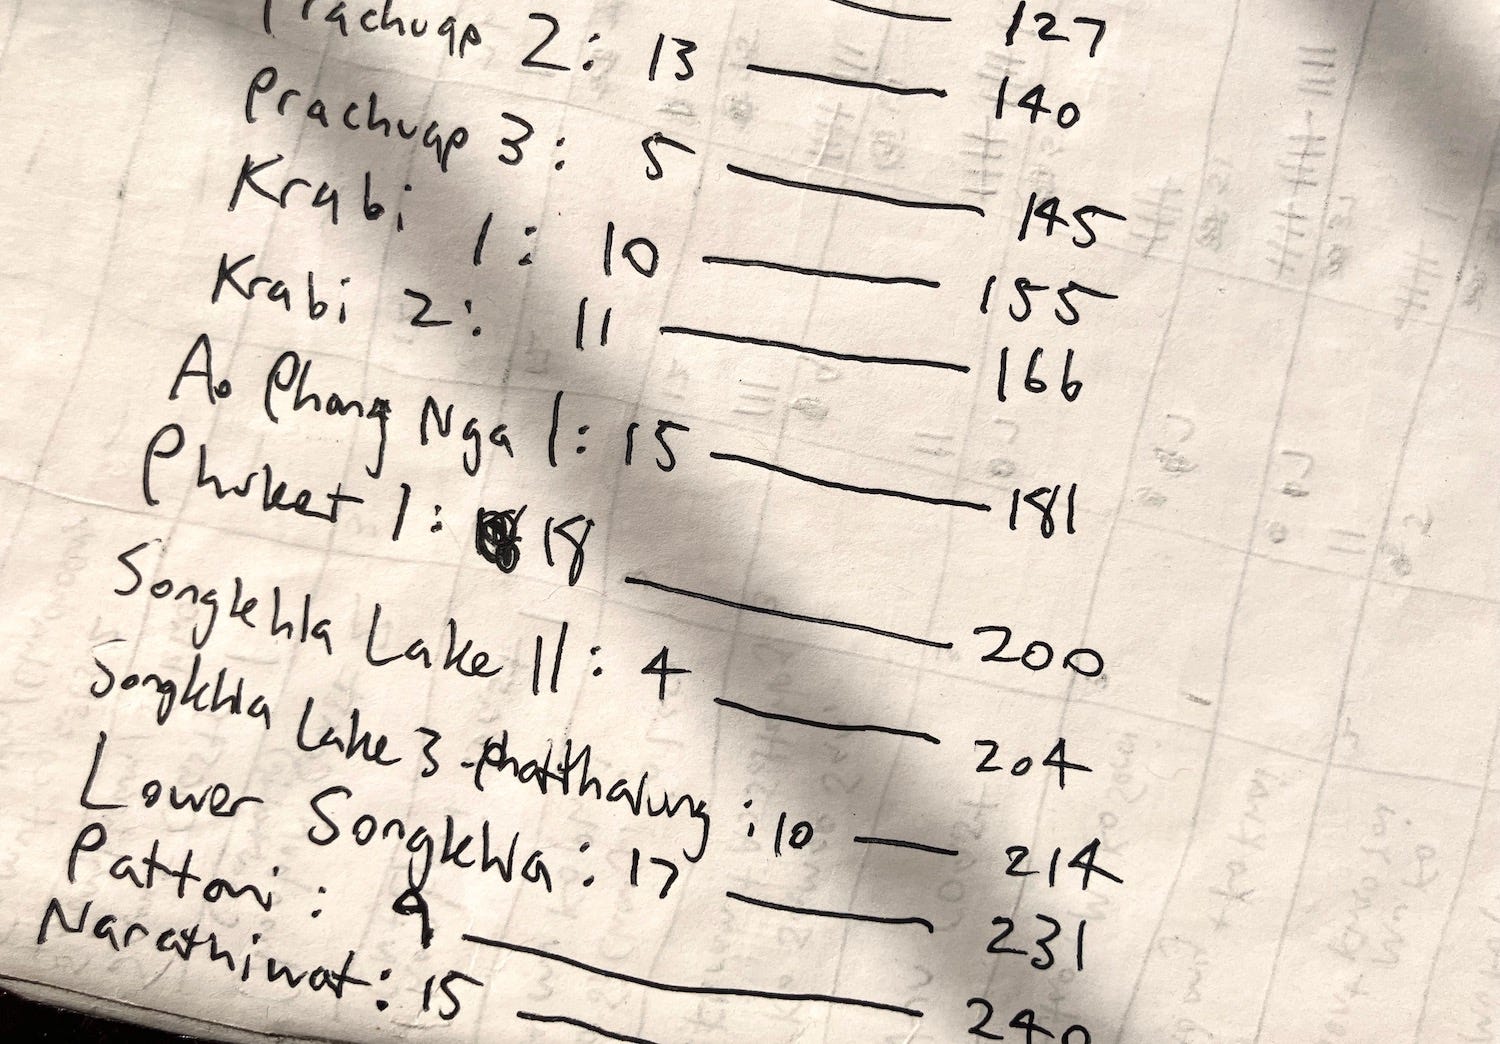 127
Prachuap 2: 13 — 140
Prachuap 3: 5 — 145
Krabi 1: 10 — 155
Krabi 2: 11 — 166
Ao Phang Nga 1: 15 — 181
Phuket 1: 18 — 200
Songkhla Lake 11: 4 — 204
Songkhla Lake 3 - Phatthalung: 10 — 214
Lower Songkhla: 17 — 231
Pattani: 9 — 240
Narathiwat: 15 —